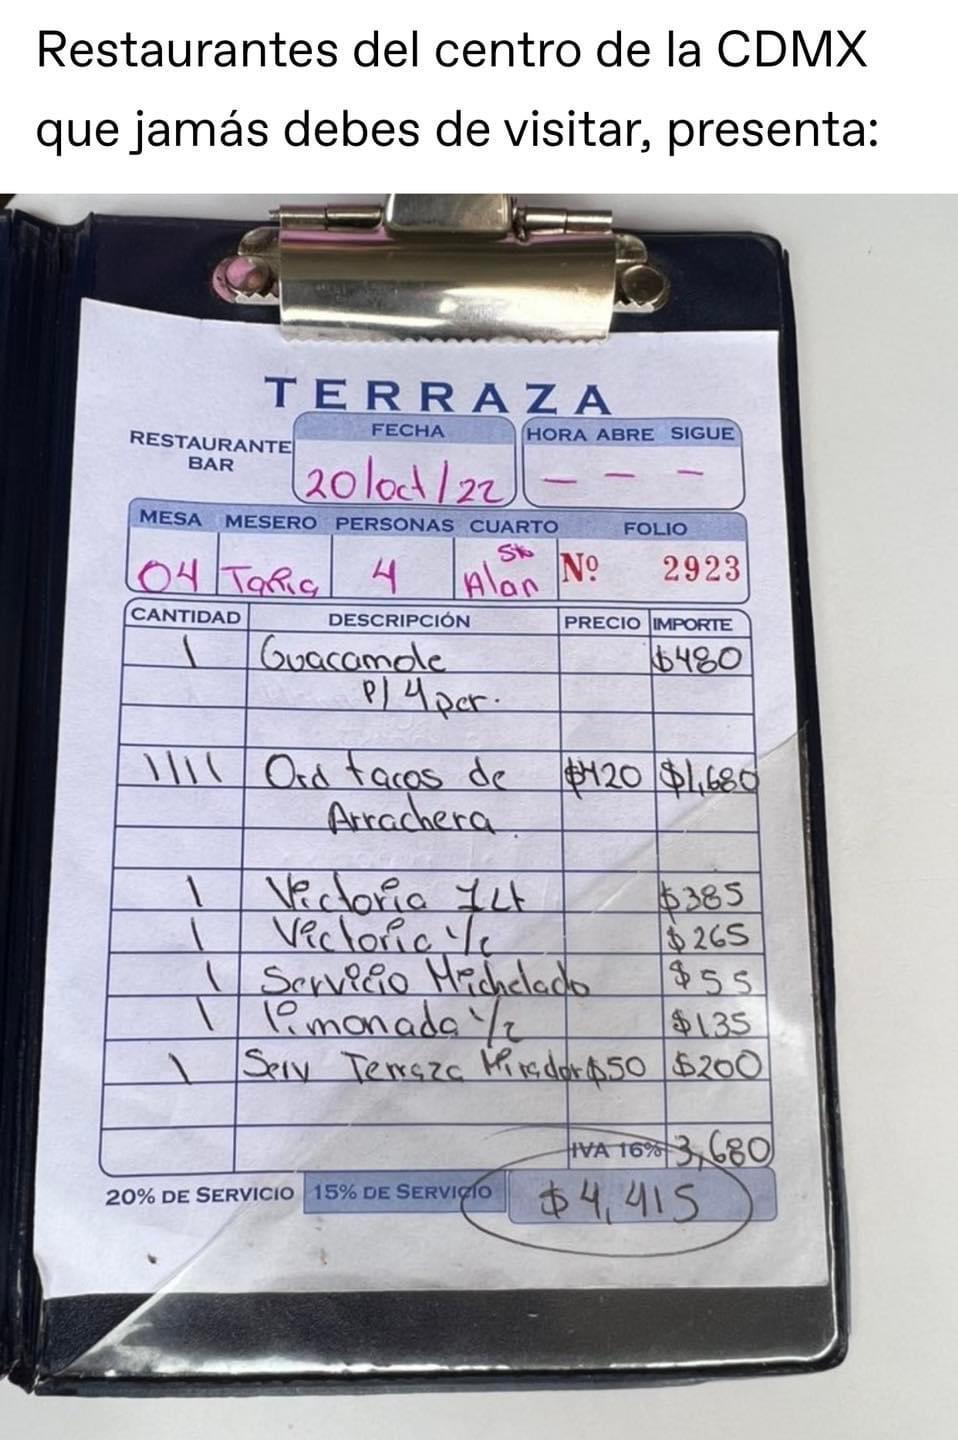 Restaurantes del centro de la CDMX
que jamás debes de visitar, presenta:
TERRAZA
RESTAURANTE
BAR
FECHA
20/oct/22
HORA ABRE SIGUE
— — —
MESA MESERO PERSONAS CUARTO FOLIO
04 4 Alan Nº 2923
CANTIDAD DESCRIPCIÓN PRECIO IMPORTE
1 Guacamole $480
p/ 4 per.
1111 Ord tacos de $420 $1,680
Arrachera
1 Victoria 1Lt $385
1 Victoria $265
1 Servicio Michelado $55
1 limonada 1/2 $135
1 Serv Terraza Mirador $50 $200
IVA 16% 3,680
20% DE SERVICIO 15% DE SERVICIO $4,415